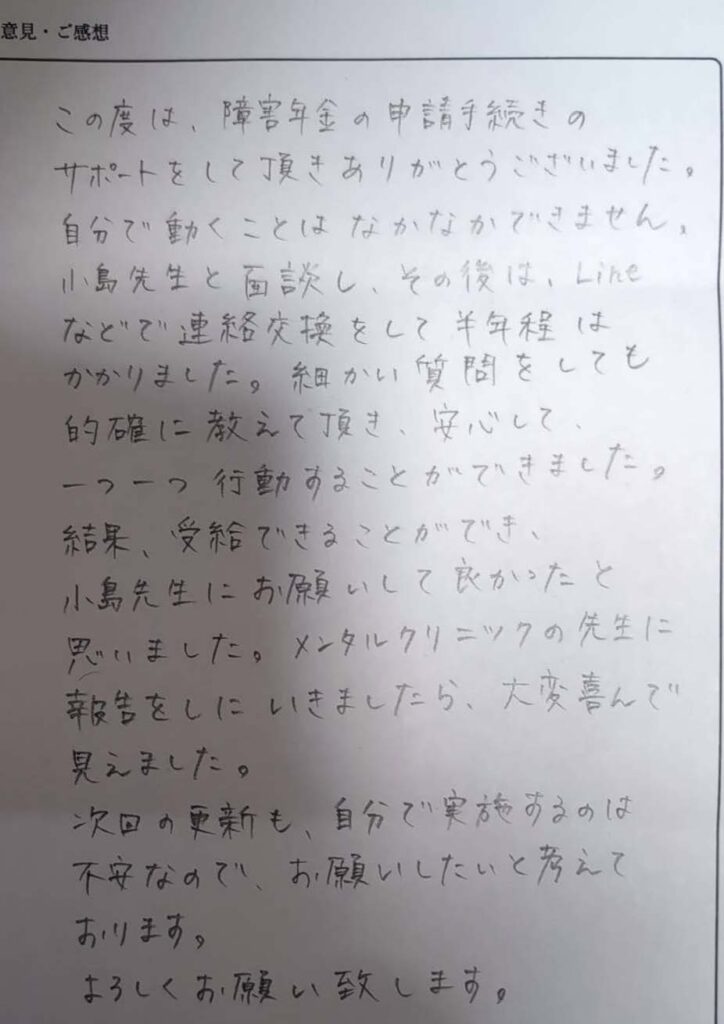 意見・ご感想
この度は、障害年金の申請手続きの
サポートをして頂きありがとうございました。
自分で動くことはなかなかできません。
小島先生と面談し、その後は、Line
などで連絡交換をして半年程は
かかりました。細かい質問をしても
的確に教えて頂き、安心して、
一つ一つ行動することができました。
結果、受給できることができ、
小島先生にお願いして良かったと
思いました。メンタルクリニックの先生に
報告をしにいきましたら、大変喜んで
見えました。
次回の更新も、自分で実施するのは
不安なので、お願いしたいと考えて
おります。
よろしくお願い致します。